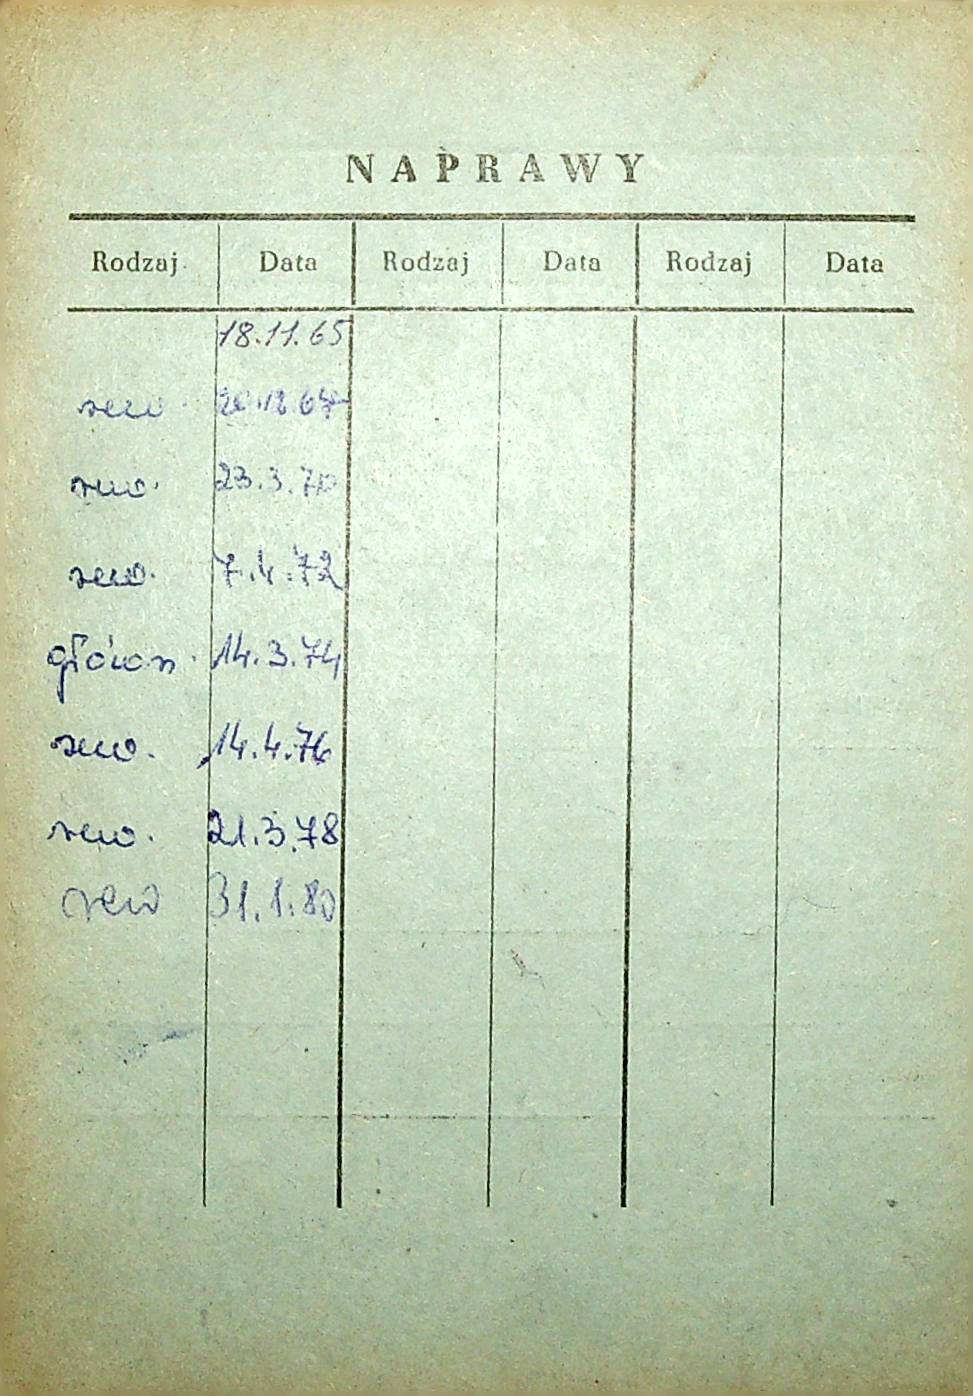 NAPRAWY
Rodzaj Data Rodzaj Data Rodzaj Data
18.11.65
rew.
rew. 23.3.70
rew. 7.4.72
główn. 14.3.74
rew. 14.4.76
rew. 21.3.78
rew 31.1.80